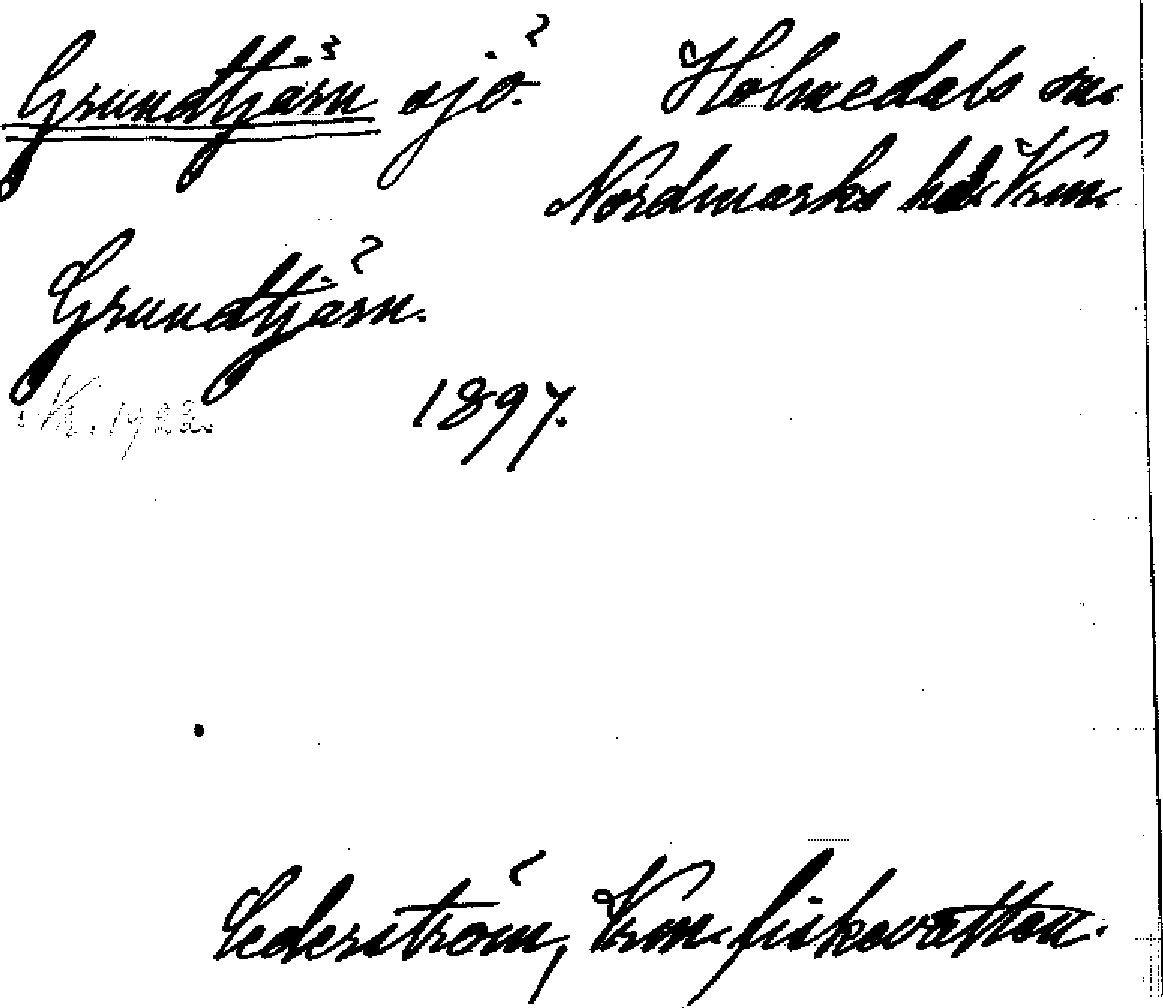 Grundtjärn sjö. Holmedals sn.
Nordmarks hd. Vrm.
Grundtjärn.
1897.
Cederström, Vrm. fiskevatten.